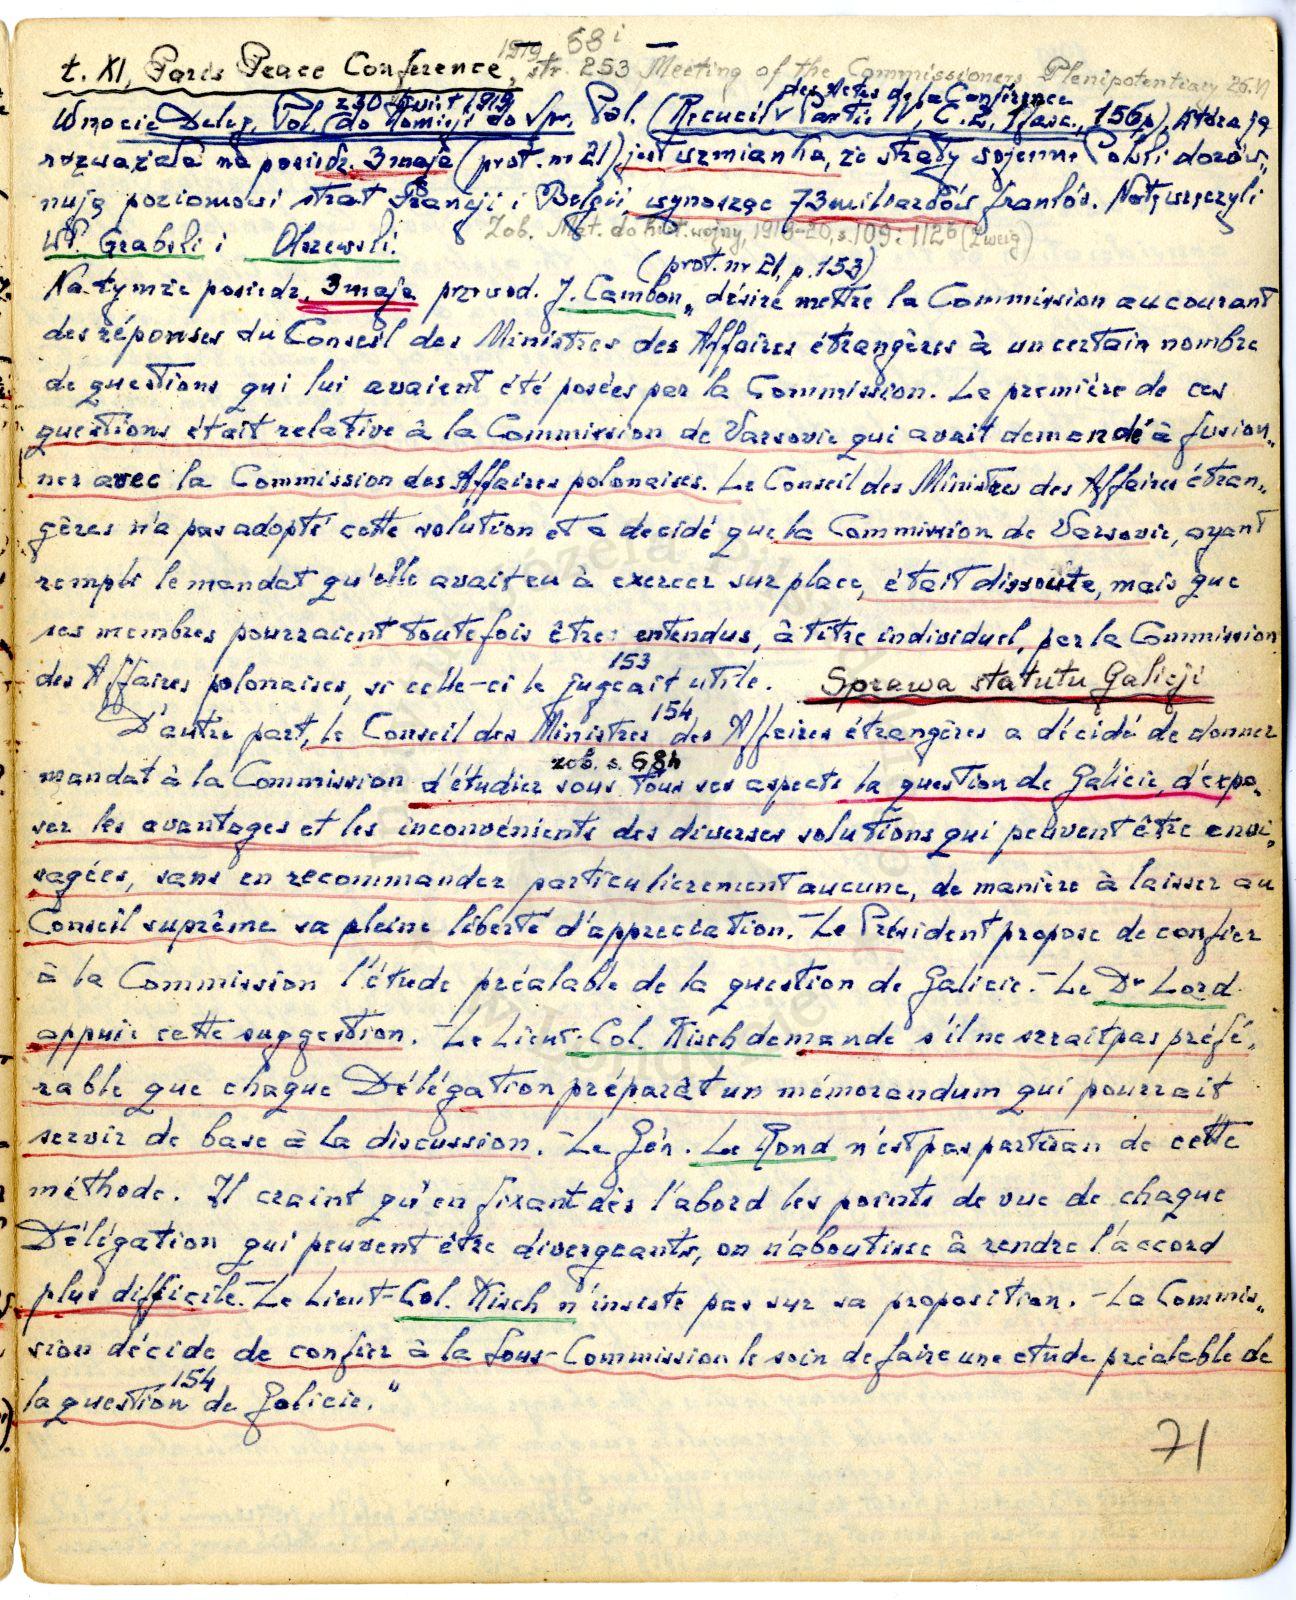 68i
t. XI, Paris Peace Conference, 1919, str. 253 Meeting of the Commissioners Plenipotentiary 26.VI
z 30 kwiet 1919 des Actes de la Conférence
W nocie Deleg. Pol. (do Komisji do Spr. Pol. (Recueil Partie IV, C. 2, fasc., 156p), którą ją
rozważała na posiedz. 3 maja (prot. nr 21) jest wzmianka, że straty wojenne Polski dorów„
nują poziomowi strat Francji i Belgii, wynosząc 73 miliardów franków. Notę wręczyli
WP. Grabski i Olszewski. Zob. Mat. do hist. wojny, 1918-20, s. 109. 1126 (Zweig)
(prot. nr 21, p. 153)
Na tymże posiedz. 3 maja przewod. J. Cambon „désire mettre la Commission au courant
des réponses du Conseil des Ministres des Affaires étrangères à un certain nombre
de questions qui lui avaient été posées par la Commission. La première de ces
questions était relative à la Commission de Varsovie qui avait demandé à fusion„
ner avec la Commission des Affaires polonaises. Le Conseil des Ministres des Affaires étran„
gères n'a pas adopté cette solution et a decidé que la Commission de Varsovie, ayant
rempli le mandat qu'elle avait eu à exercer sur place, était dissoute, mais que
ses membres pourraient toutefois être entendus, à titre individuel, par la Commission
153
des Affaires polonaises, si celle-ci le jugeait utile. Sprawa statutu Galicji
154
D'autre part, le Conseil des Ministres des Affaires étrangères a décidé de donner
zob. s. 68h
mandat à la Commission d'étudier sous tous ses aspects la question de Galicie, d'expo„
ser les avantages et les inconvénients des diverses solutions qui peuvent être envi„
sagées, sans en recommander particulierement aucune, de manière à laisser au
Conseil suprême sa pleine liberté d'appreciation. – Le Président propose de confier
à la Commission l'étude préalable de la question de Galicie. – Le Dr Lord
appuie cette suggestion. – Le Lieut-Col. Kisch demande s'il ne serait pas préfé„
rable que chaque Délégation préparât un mémorandum qui pourrait
servir de base à la discussion. – Le Gén. Le Rond n'est pas partisan de cette
méthode. Il craint qu'en fixant dès l'abord les points de vue de chaque
Délégation qui peuvent être divergeants, on n'aboutisse à rendre l'accord
plus difficile. – Le Lieut-Col. Kisch n'insiste pas sur sa proposition. – La Commis„
sion décide de confier à la Sous-Commission le soin de faire une etude préalable de
154
la question de Galicie."
71